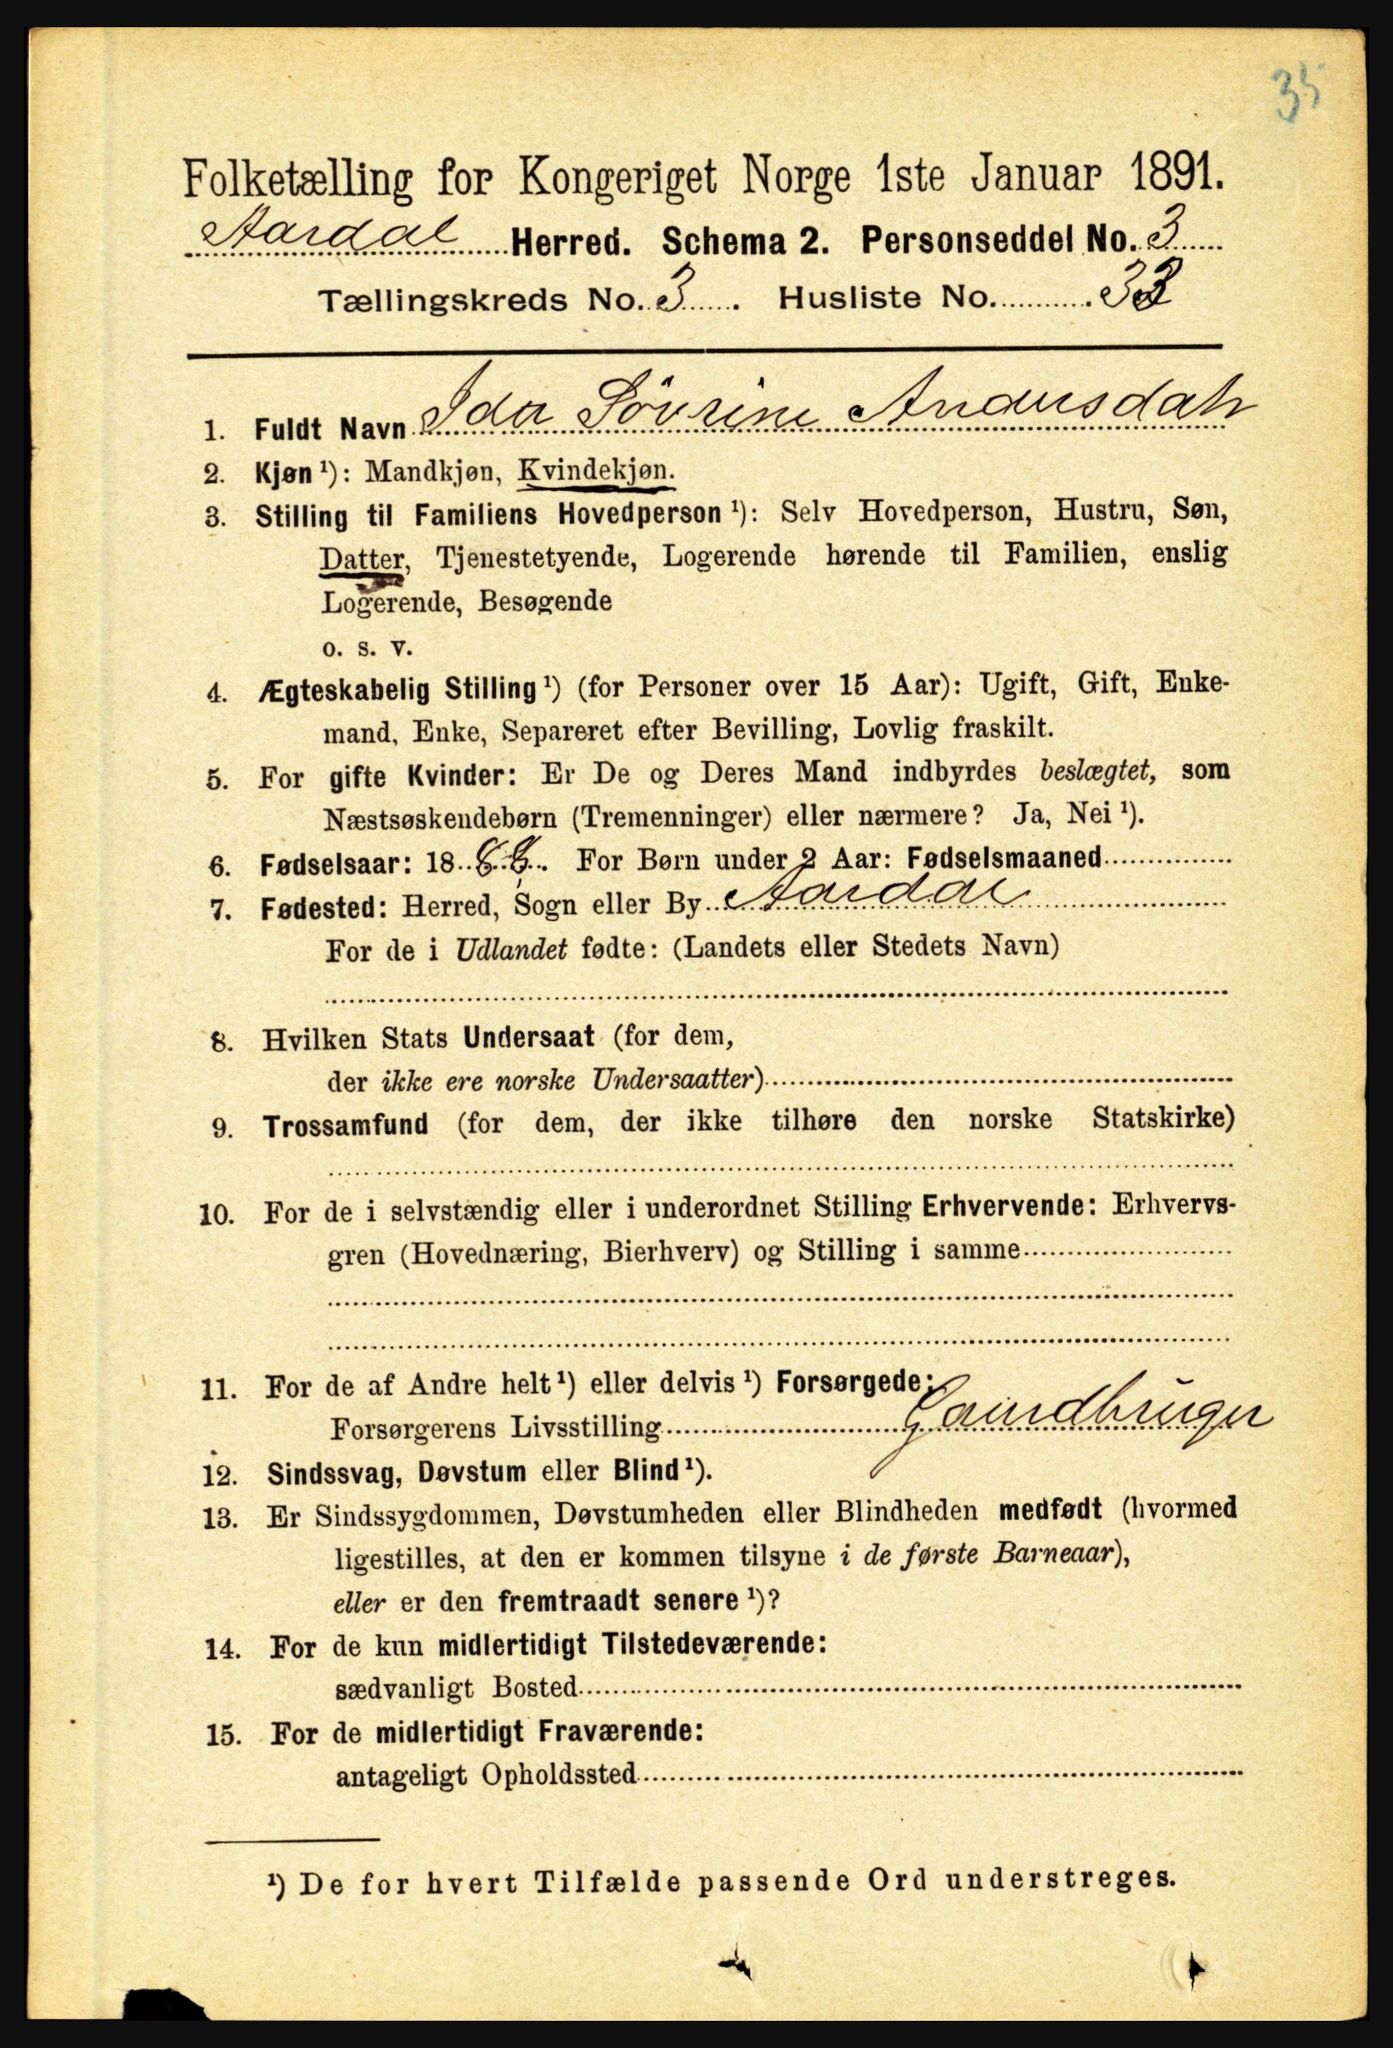 35
Folketælling for Kongeriget Norge 1ste Januar 1891.
Aardal Herred. Schema 2. Personseddel No. 3
Tællingskreds No. 3. Husliste No. 33
1. Fuldt Navn Ida Sövrine Andersdatr
2. Kjøn ¹): Mandkjøn, Kvindekjøn.
3. Stilling til Familiens Hovedperson ¹): Selv Hovedperson, Hustru, Søn,
Datter, Tjenestetyende, Logerende hørende til Familien, enslig
Logerende, Besøgende
o. s. v.
4. Ægteskabelig Stilling ¹) (for Personer over 15 Aar): Ugift, Gift, Enke-
mand, Enke, Separeret efter Bevilling, Lovlig fraskilt.
5. For gifte Kvinder: Er De og Deres Mand indbyrdes beslægtet, som
Næstsøskendebørn (Tremenninger) eller nærmere? Ja, Nei ¹).
6. Fødselsaar: 18 For Børn under 2 Aar: Fødselsmaaned
7. Fødested: Herred, Sogn eller By Aardal
For de i Udlandet fødte: (Landets eller Stedets Navn)
8. Hvilken Stats Undersaat (for dem,
der ikke ere norske Undersaatter)
9. Trossamfund (for dem, der ikke tilhøre den norske Statskirke)
10. For de i selvstændig eller i underordnet Stilling Erhvervende: Erhvervs-
gren (Hovednæring, Bierhverv) og Stilling i samme
11. For de af Andre helt ¹) eller delvis ¹) Forsørgede:
Forsørgerens Livsstilling Gaardbruger
12. Sindssvag, Døvstum eller Blind ¹).
13. Er Sindssygdommen, Døvstumheden eller Blindheden medfødt (hvormed
ligestilles, at den er kommen tilsyne i de første Barneaar),
eller er den fremtraadt senere ¹)?
14. For de kun midlertidigt Tilstedeværende:
sædvanligt Bosted
15. For de midlertidigt Fraværende:
antageligt Opholdssted
¹) De for hvert Tilfælde passende Ord understreges.